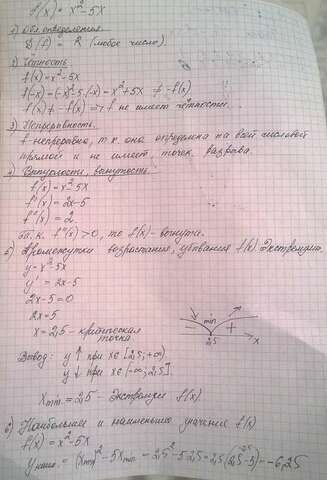 f(x) = x²-5x
1) Обл. определения.
D(f) = R (любое число).
2) Чётность
f(x)=x²-5x
f(-x)=(-x)²-5·(-x)=x²+5x ≠ -f(x)
f(x) ≠ -f(x) => f не имеет чётности.
3) Непрерывность.
f-непрерывна, т.к. она определена на всей числовой
прямой и не имеет точек разрыва.
4) Выпуклость, вогнутость.
f(x)=x²-5x
f'(x)=2x-5
f''(x)=2
т.к. f''(x)>0, то f(x)- вогнута.
5) Промежутки возрастания, убывания f(x). Экстремумы.
y=x²-5x
y'=2x-5
2x-5=0
2x=5
x=2,5- критическая
точка
min
- +
2,5 x
Вывод: y ↑ при x∈[2,5;+∞)
y ↓ при x∈(-∞;2,5].
xmin=2,5- экстремум f(x).
6) Наибольшее и наименьшее значение f(x)
f(x)=x²-5x
yнаим.=(xmin)²-5xmin=2,5²-5·2,5=2,5(2,5-5)=-6,25